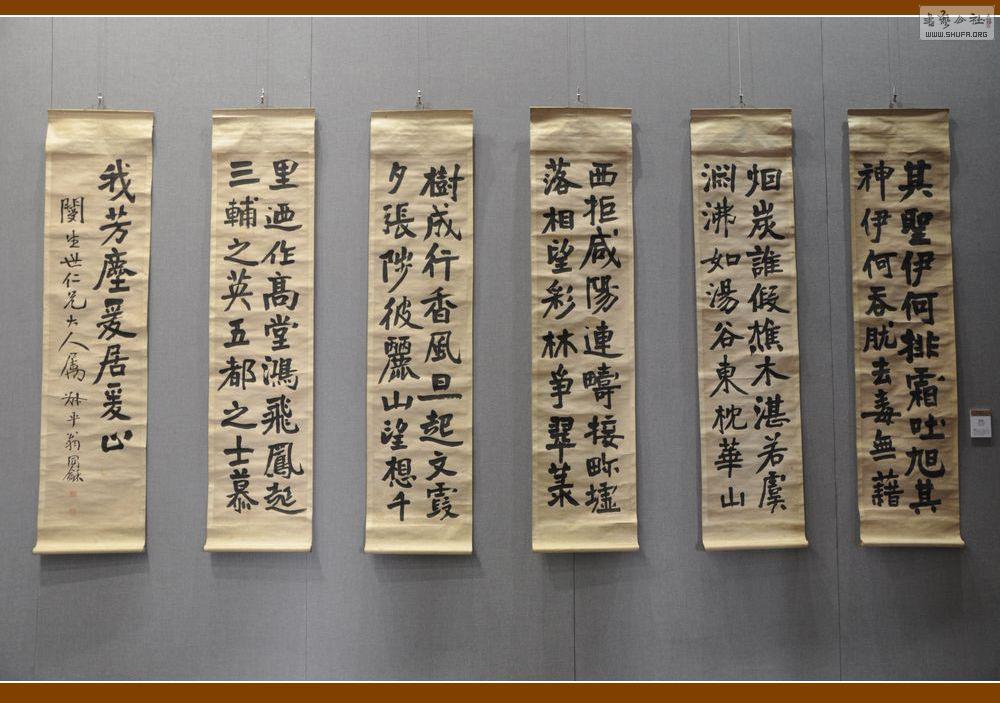 其聖伊何排霜吐旭其
神伊何吞肬去毒無藉
烟炭誰假樵木湛若虞
渊沸如湯谷東枕華山
西拒咸陽連疇接畛墟
落相望彩林争翠菓
樹成行香風旦起文霞
夕張陟彼麗山望想千
里迺作高堂鴻飛鳳起
三輔之英五都之士慕
我芳塵爰居爰止
生世仁兄大人属 叔平翁同龢
書藝公社
WWW.SHUFA.ORG